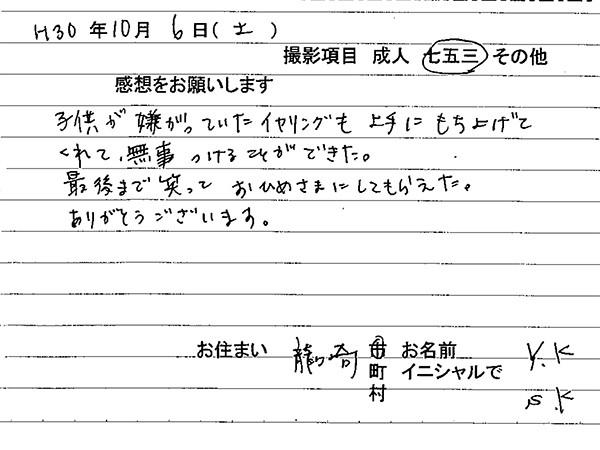 H30年10月6日(土)
撮影項目 成人 七五三 その他
感想をお願いします
子供が嫌がっていたイヤリングも上手にもちよげて
くれて、無事つけることができた。
最後まで笑っておひめさまにしてもらえた。
ありがとうございます。
お住まい 龍ヶ崎 市 お名前 Y.K
町 イニシャルで
村 S.K